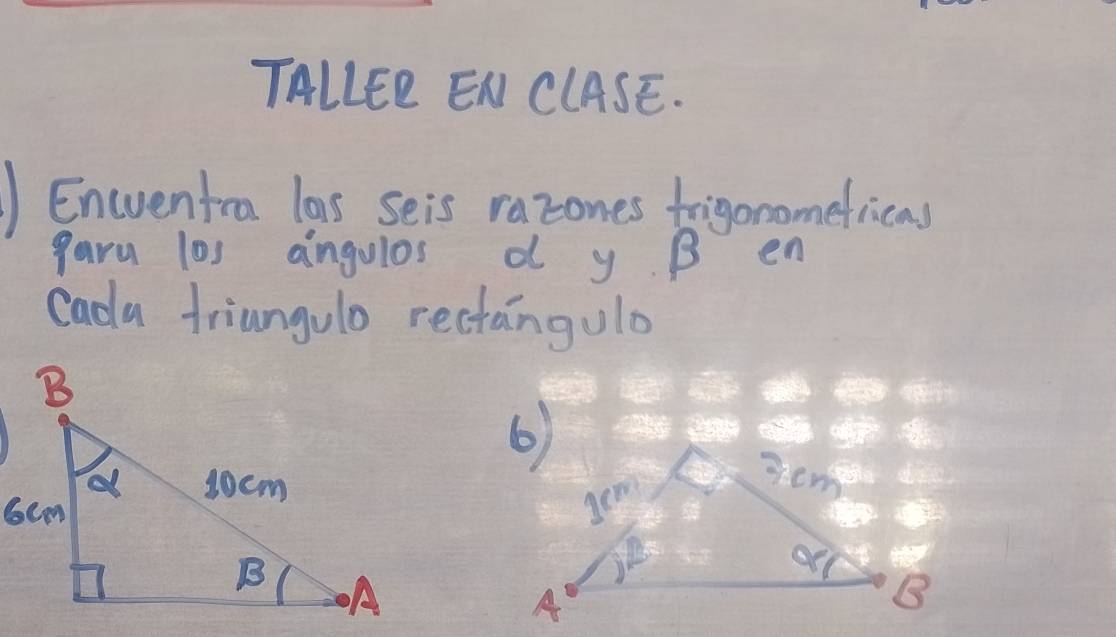 TALLER EN CLASE.
1) Encuentra las seis razones trigonometricas
para los ángulos α y β en
Cada triangulo rectángulo
B
α
10cm
6cm
B
A
b)
7cm
α
A
B